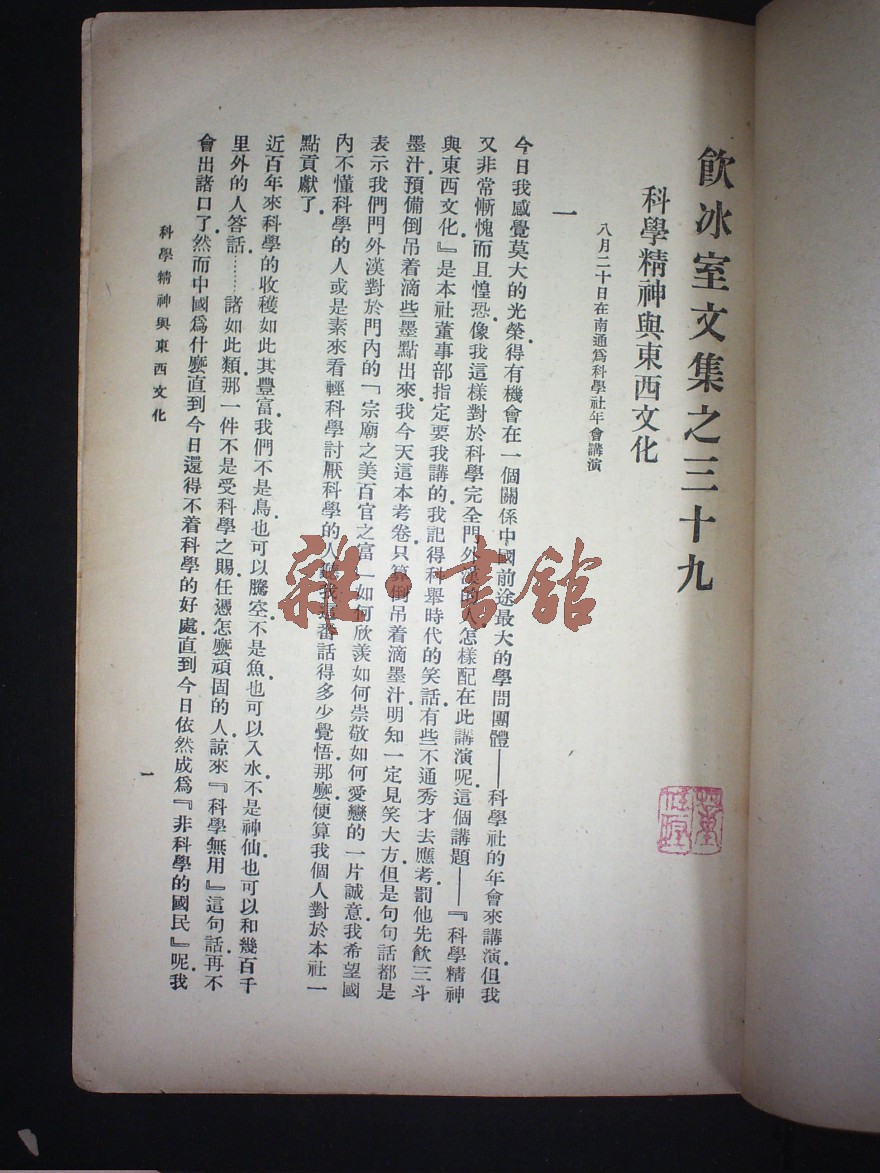 飲冰室文集之三十九
科學精神與東西文化
八月二十日在南通爲科學社年會講演
一
今日我感覺莫大的光榮得有機會在一個關係中國前途最大的學問團體——科學社的年會來講演但我
又非常慚愧而且惶恐像我這樣對於科學完全門外漢的人怎樣配在此講演呢這個講題——『科學精神
與東西文化』是本社董事部指定要我講的我記得科舉時代的笑話有些不通秀才去應考罰他先飲三斗
墨汁預備倒吊着滴些墨點出來我今天這本考卷只算倒吊着滴墨汁明知一定見笑大方但是句句話都是
表示我們門外漢對於門內的『宗廟之美百官之富』如何欣羨如何崇敬如何愛戀的一片誠意我希望國
內不懂科學的人或是素來看輕科學討厭科學的人聽我這番話得多少覺悟那麼便算我個人對於本社一
點貢獻了
近百年來科學的收穫如此其豐富我們不是鳥也可以騰空不是魚也可以入水不是神仙也可以和幾百千
里外的人答話……諸如此類那一件不是受科學之賜任憑怎麼頑固的人諒來『科學無用』這句話再不
會出諸口了然而中國爲什麼直到今日還得不着科學的好處直到今日依然成爲『非科學的國民』呢我
科學精神與東西文化
一
雜·書館